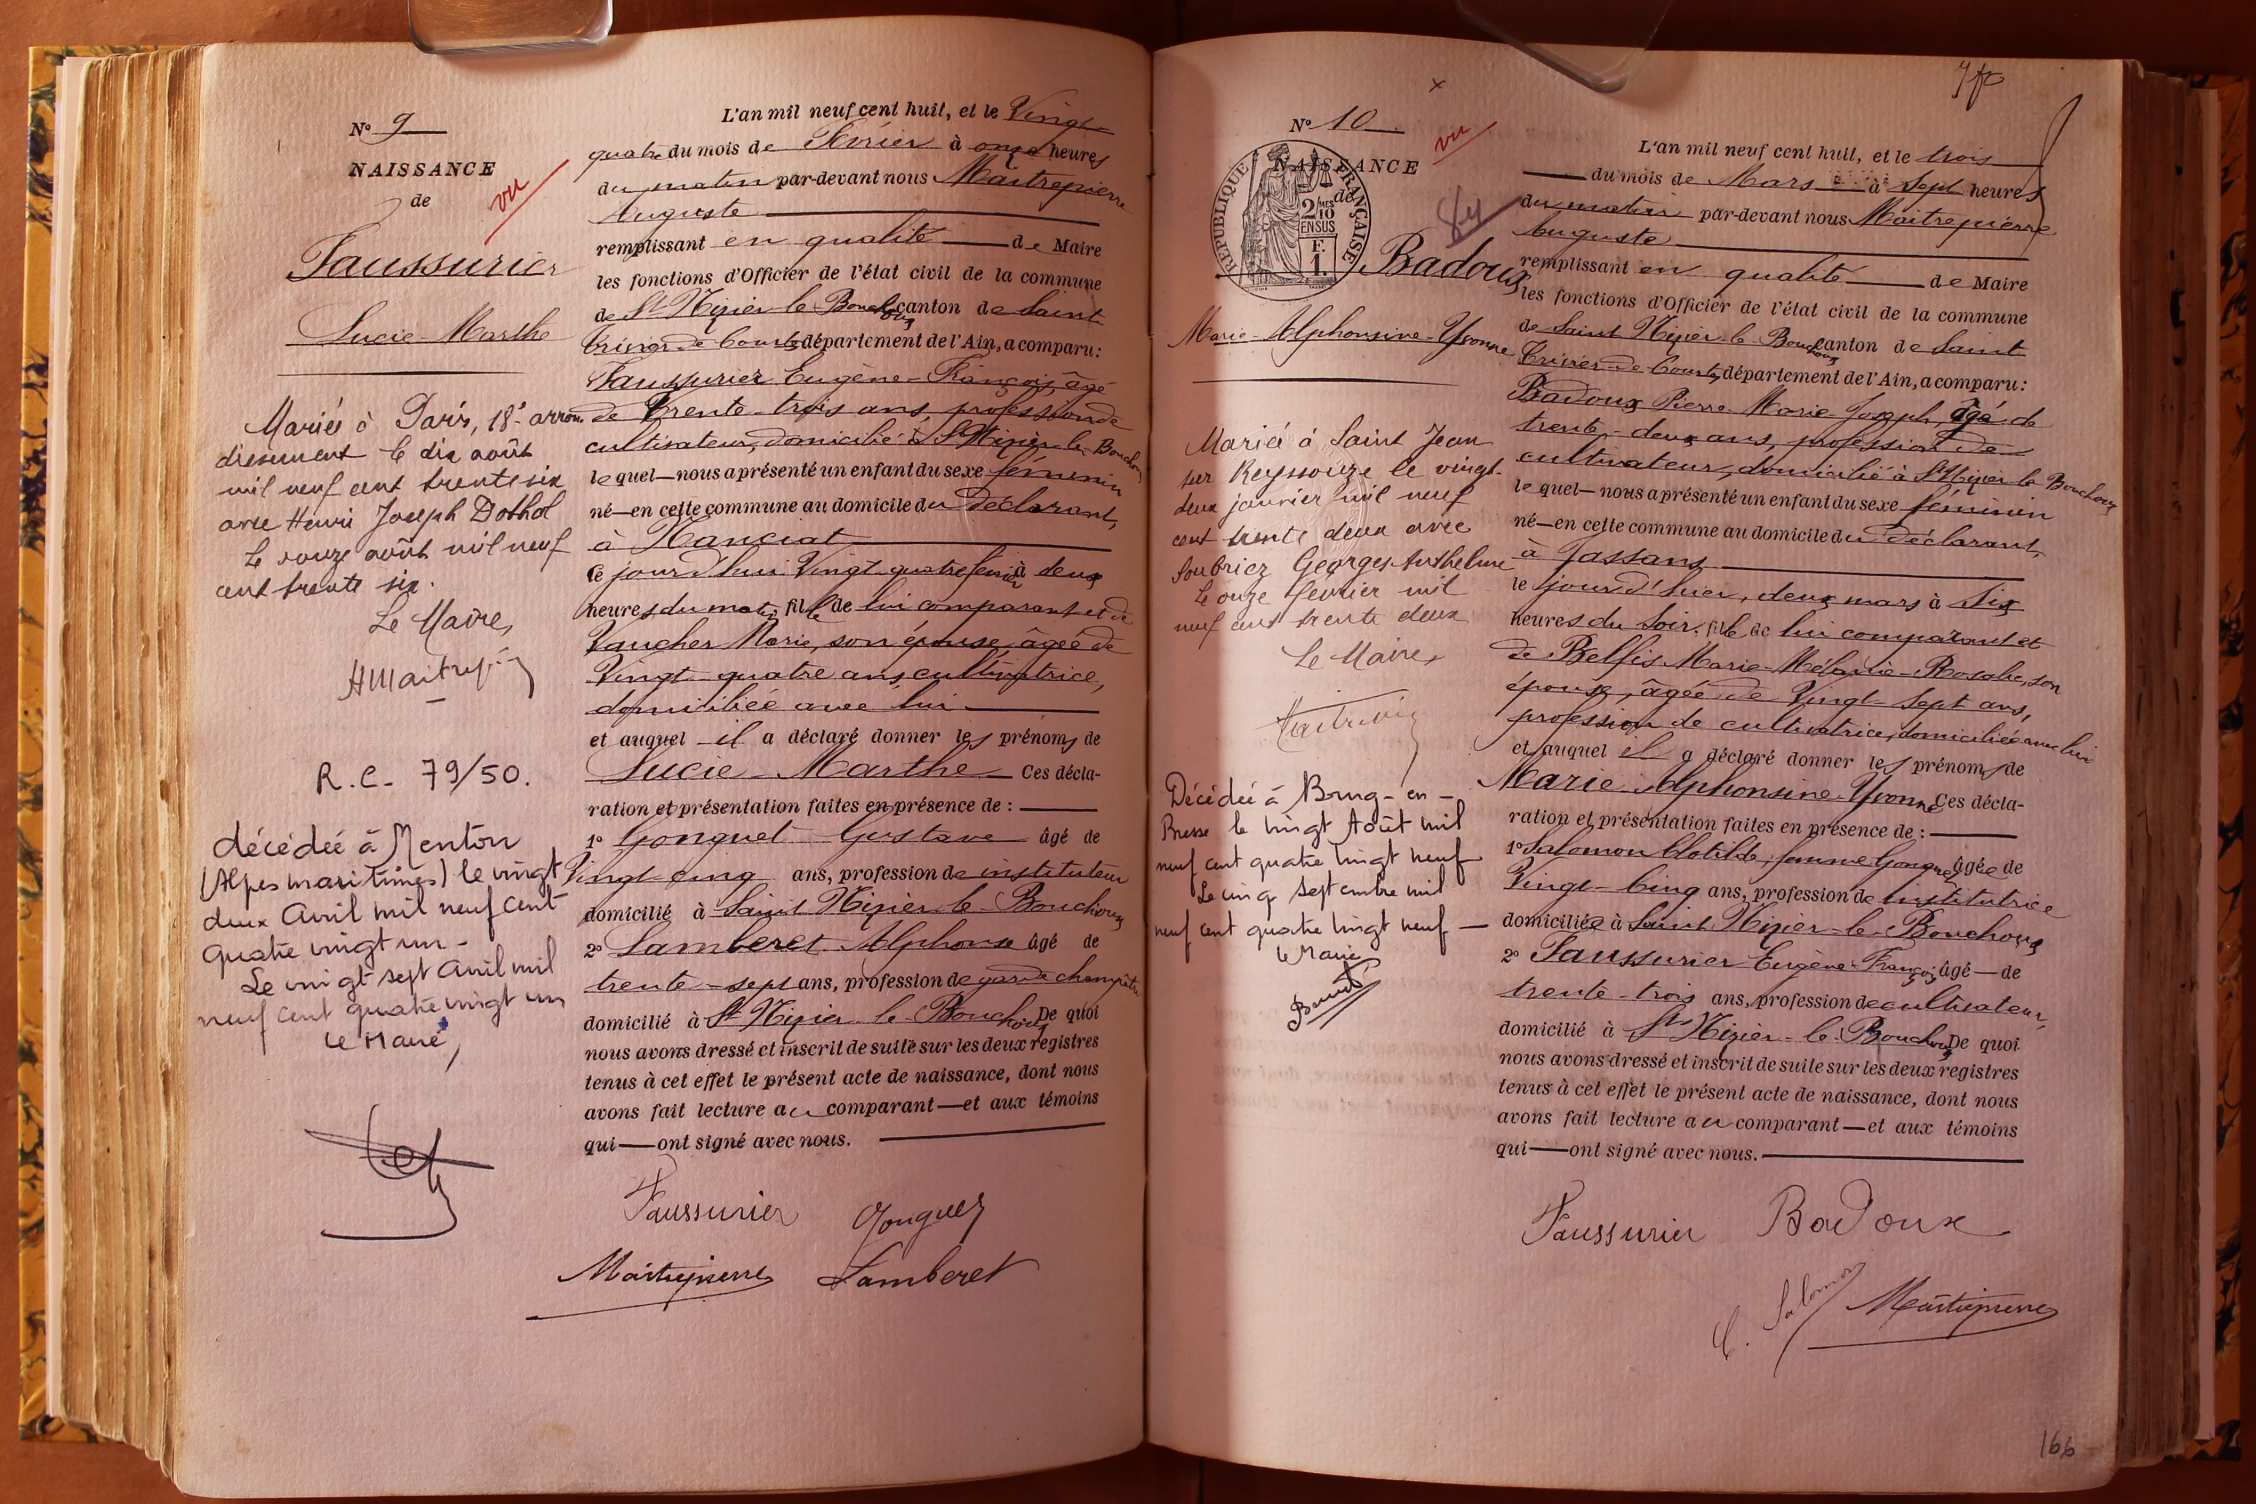 Nº 9
NAISSANCE
de
vu
Faussurier
Lucie-Marthe
Mariée à Paris, 18e arron
dissement le dix août
mil neuf cent trente six
avec Henri Joseph
Le août mil neuf
cent trente six.
Le Maire,
R.C. 79/50.
décédée à Menton
(Alpes maritimes) le vingt
deux Avril mil neuf cent
quatre vingt un -
Le vingt sept Avril mil
neuf cent quatre vingt un
Le Maire,
L'an mil neuf cent huit, et le Vingt-
quatre du mois de Février à onze heures
du matin par-devant nous Maitrepierre
Auguste
remplissant en qualité de Maire
les fonctions d'Officier de l'état civil de la commune
de St Nizier-le-Bouchoux canton de Saint-
Trivier-de-Courtes département de l'Ain, a comparu :
Faussurier Eugène-François, âgé
de trente-trois ans, profession de
cultivateur, domicilié à St Nizier-le-Bouchoux
lequel nous a présenté un enfant du sexe féminin
né en cette commune au domicile du déclarant,
à Ranciat
le jour d'hui Vingt-quatre février à deux
heures du matin, fille de lui comparant et de
Vaucher Marie, son épouse, âgée de
Vingt-quatre ans, cultivatrice,
domiciliée avec lui
et auquel il a déclaré donner les prénoms de
Lucie-Marthe Ces décla-
ration et présentation faites en présence de :
1º Gonguet Gustave âgé de
Vingt-cinq ans, profession de instituteur
domicilié à Saint Nizier-le-Bouchoux
2º Lamberet Alphonse âgé de
trente-sept ans, profession de garde champêtre
domicilié à St Nizier-le-Bouchoux De quoi
nous avons dressé et inscrit de suite sur les deux registres
tenus à cet effet le présent acte de naissance, dont nous
avons fait lecture au comparant et aux témoins
qui ont signé avec nous.
Faussurier Gonguet
Maitrepierre Lamberet
Nº 10
NAISSANCE
de
RÉPUBLIQUE FRANÇAISE
2/10MES
EN SUS
F.
1.
vu
Badoux
Marie-Alphonsine-Yvonne
Mariée à Saint Jean
sur Reyssouze le vingt-
deux janvier mil neuf
cent trente deux avec
Soubriez Georges Anthelme
Le onze février mil
neuf cent trente deux
Le Maire,
Décédée à Bourg-en-
Bresse le vingt Août mil
neuf cent quatre vingt neuf
Le cinq septembre mil
neuf cent quatre vingt neuf
Le Maire
L'an mil neuf cent huit, et le trois
du mois de Mars à sept heures
du matin par-devant nous Maitrepierre
Auguste
remplissant en qualité de Maire
les fonctions d'Officier de l'état civil de la commune
de Saint Nizier-le-Bouchoux canton de Saint
Trivier-de-Courtes, département de l'Ain, a comparu :
Badoux Pierre-Marie-Joseph, âgé de
trente-deux ans, profession de
cultivateur, domicilié à St Nizier-le-Bouchoux
lequel nous a présenté un enfant du sexe féminin
né en cette commune au domicile du déclarant,
à Jassans
le jour d'hier, deux mars à six
heures du soir, fille de lui comparant et
de Belfis Marie-Mélanie-Rosalie, son
épouse, âgée de Vingt-sept ans,
profession de cultivatrice, domiciliée avec lui
et auquel il a déclaré donner les prénoms de
Marie-Alphonsine-Yvonne Ces décla-
ration et présentation faites en présence de :
1º Salomon Clotilde, femme Gonguet âgée de
Vingt-Cinq ans, profession de institutrice
domiciliée à Saint-Nizier-le-Bouchoux
2º Faussurier Eugène-François, âgé de
trente-trois ans, profession de cultivateur,
domicilié à St Nizier-le-Bouchoux De quoi
nous avons dressé et inscrit de suite sur les deux registres
tenus à cet effet le présent acte de naissance, dont nous
avons fait lecture au comparant et aux témoins
qui ont signé avec nous.
Faussurier Badoux
C. Salomon Maitrepierre
166